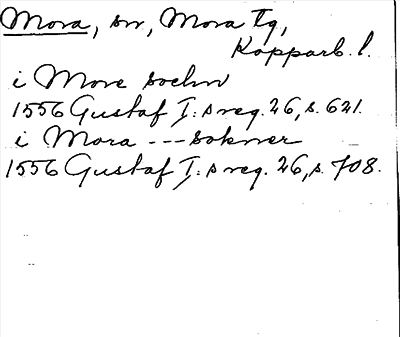 Mora, sn, Mora tg,
Kopparb. l.
i More sochn
1556 Gustaf I:s reg. 26, s. 621.
i Mora --- sokner
1556 Gustaf I:s reg. 26, s. 708.